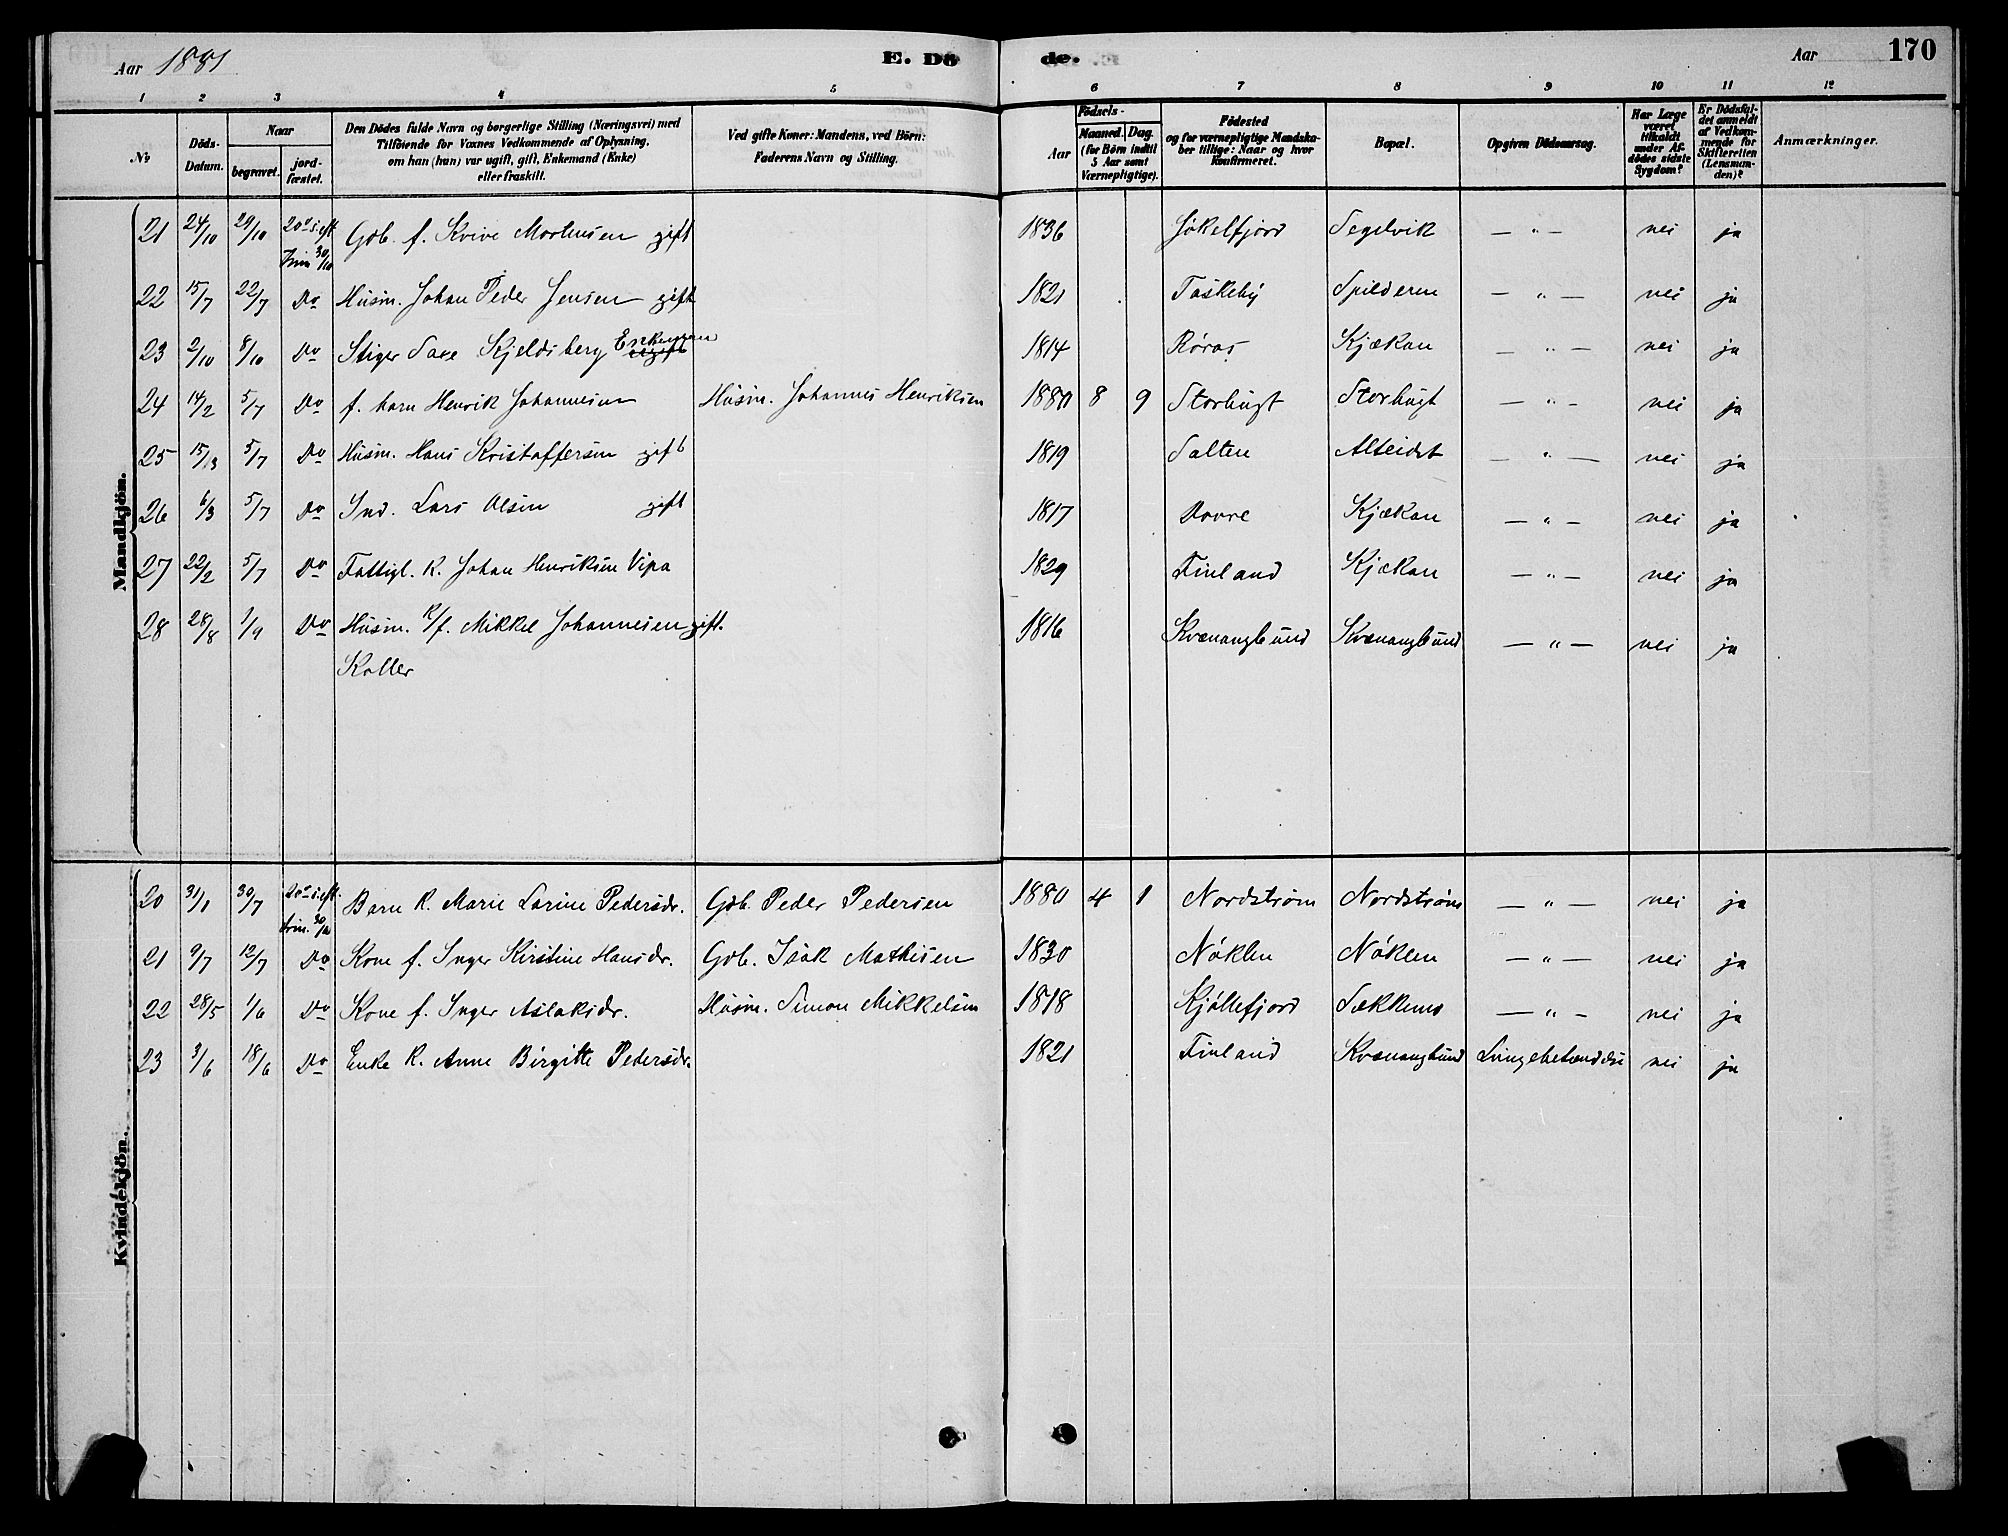 Aar 1881
E. Dö
de.
Aar
170
1 2 3 4 5 6 7 8 9 10 11 12
No
Döds-Datum.
Naar
begravet.
jord-fæstet.
Den Dödes fulde Navn og borgerlige Stilling (Næringsvei) med
Tilföiende for Voxnes Vedkommende af Oplysning,
om han (hun) var ugift, gift, Enkemand (Enke)
eller fraskilt.
Ved gifte Koner: Mandens, ved Börn:
Faderens Navn og Stilling.
Födsels-
Aar
Maaned. Dag.
(for Börn indtil
5 Aar samt
Værnepligtige).
Födested
og for værnepligtige Mandska-
ber tillige: Naar og hvor
konfirmeret.
Bopæl.
Opgiven Dödsaarsag.
Har Læge
været
tilkaldt
under Af-
dödes sidste
Sygdom?
Er Dödsfal-
det anmeldt
af Vedkom-
mende for
Skifteretten
(Lensman-
den)?
Anmærkninger.
Mandkjön.
21 24/10 29/10 20de S. eft. Trin 30/10 Gdb. f. Kvive Mortensen gift 1836 Jökelfjord Segelvik — " — nei ja
22 15/7 22/7 Do Husm. Johan Peder Jensen gift 1821 Taskeby Spilderen — " — nei ja
23 2/10 8/10 Do Stiger Saxe Kjeldsberg Enkemann ugift 1814 Röros Kjækan — " — nei ja
24 14/2 5/7 Do f. barn Henrik Johannesen Husm. Johannes Henriksen 1880 8 9 Storbugt Storbugt — " — nei ja
25 15/3 5/7 Do Husm. Hans Kristoffersen gift 1819 Salten Alteidet — " — nei ja
26 6/3 5/7 Do Ind. Lars Olsen gift 1817 Dovre Kjækan — " — nei ja
27 22/2 5/7 Do Fattigl. K. Johan Henriksen Vipa 1829 Finland Kjækan — " — nei ja
28 28/8 1/9 Do Husm. K/f. Mikkel Johannesen gift. 1816 Kvænangbund Kvænangbund — " — nei ja
Koller
Kvindekjön.
20 31/1 30/7 20de S. eft. Trin. 30/10 Barn K. Marie Larine Pedersdr. Gdb. Peder Pedersen 1880 4 1 Nordström Nordström — " — nei ja
21 9/7 12/7 Do Kone f. Inger Kirstine Hansdr. Gdb. Isak Mathisen 1830 Nöklen Nöklen — " — nei ja
22 28/5 1/6 Do Kone f. Inger Aslaksdr. Husm. Simon Mikkelsen 1818 Kjöllefjord Sækkemo — " — nei ja
23 3/6 18/6 Do Enke K. Anne Birgitte Pedersdr. 1821 Finland Kvænangbund Lungebetændelse nei ja